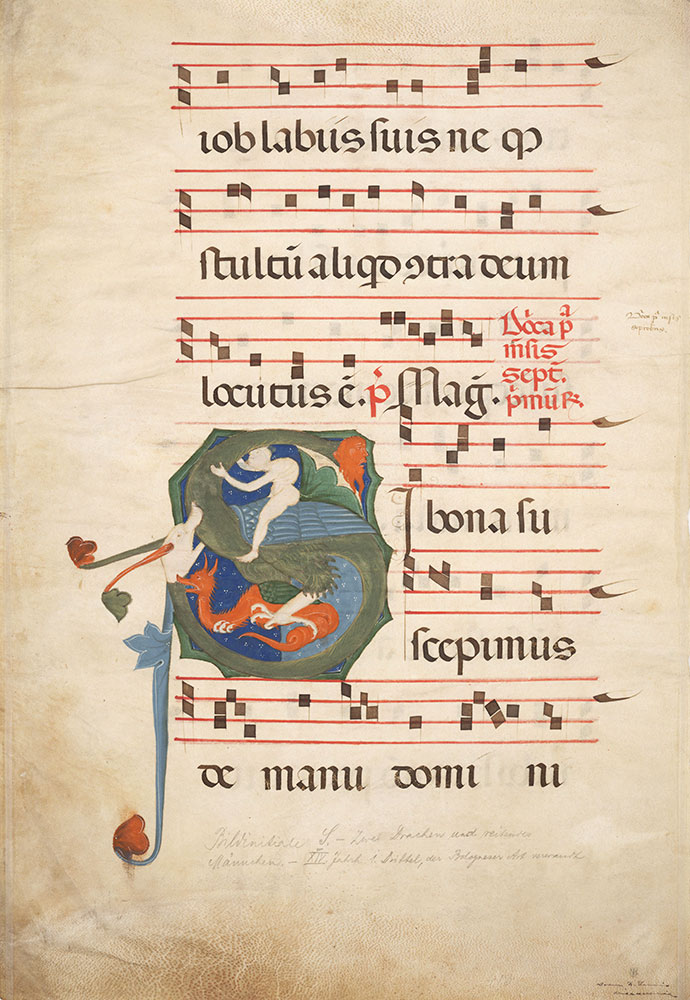 iob labiis suis ne qꝫ
stultū aliqd ↄtra deum
locutus ē. p̄ Mag̃. Dn̄ica pª
mēsis
sept̄.
p̄mū R̷.
I bona su
scepimus
de manu domi ni
Bildinitiale S. – Zwei Drachen und reitendes
Männchen. – XIV. Jahrh. 1. Drittel, der Bologneser Art verwandt